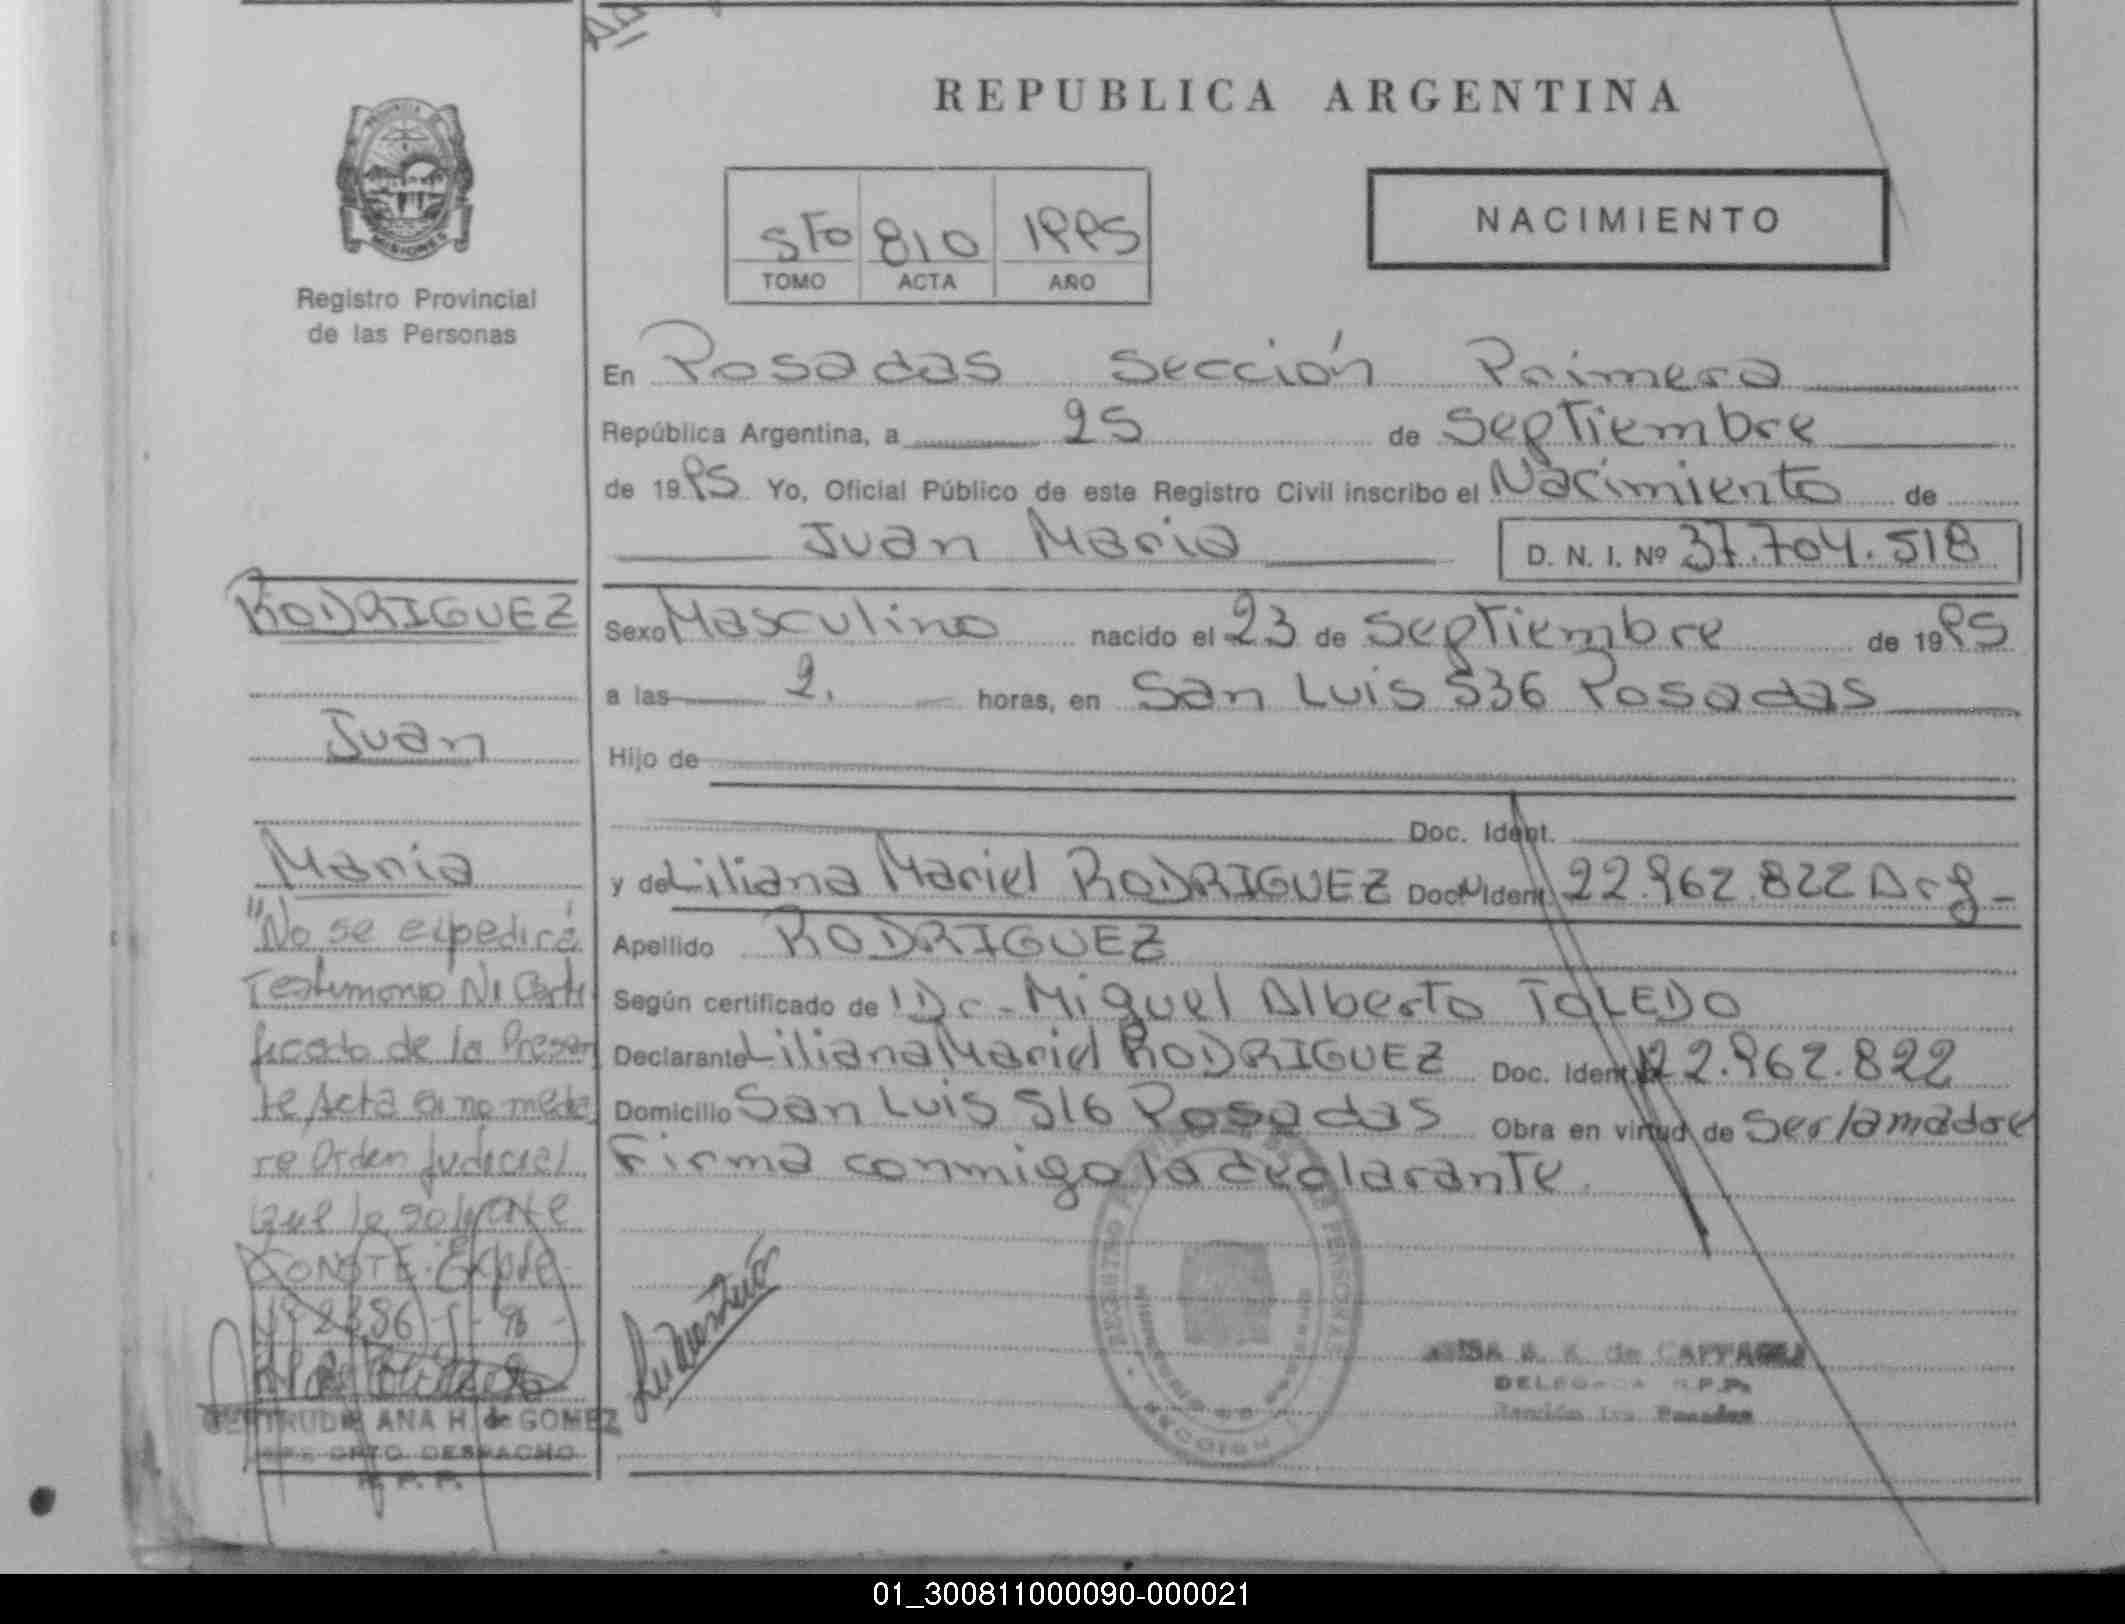 REPUBLICA ARGENTINA
MISIONES
Registro Provincial
de las Personas
5To 810 1995
TOMO ACTA AÑO
NACIMIENTO
En Posadas Sección Primera
República Argentina, a 25 de Septiembre
de 1995 Yo, Oficial Público de este Registro Civil inscribo el Nacimiento de
Juan Maria D. N. I. Nº 37.704.518
Sexo Masculino nacido el 23 de Septiembre de 1995
a las 2. horas, en San Luis 536 Posadas
Hijo de
Doc. Ident.
y de Liliana Mariel RODRIGUEZ Doc. Ident. 22.962.822 Arg-
Apellido RODRIGUEZ
Según certificado de Dr. Miguel Alberto TOLEDO
Declarante Liliana Mariel RODRIGUEZ Doc. Ident. 22.962.822
Domicilio San Luis 516 Posadas Obra en virtud de Ser la madre
Firma conmigo la declarante.
RODRIGUEZ
Juan
Maria
"No se expedirá
Testimonio Ni Certi
ficado de la Presen
te Acta si no media
re Orden Judicial
que lo solicite
CONSTE. Expte
GERTRUDIS ANA H. de GOMEZ
DPTO DESPACHO
R. P. P.
de CAPPA
DELEGADA R.P.P.
Sección 1ra Posadas
01_300811000090-000021